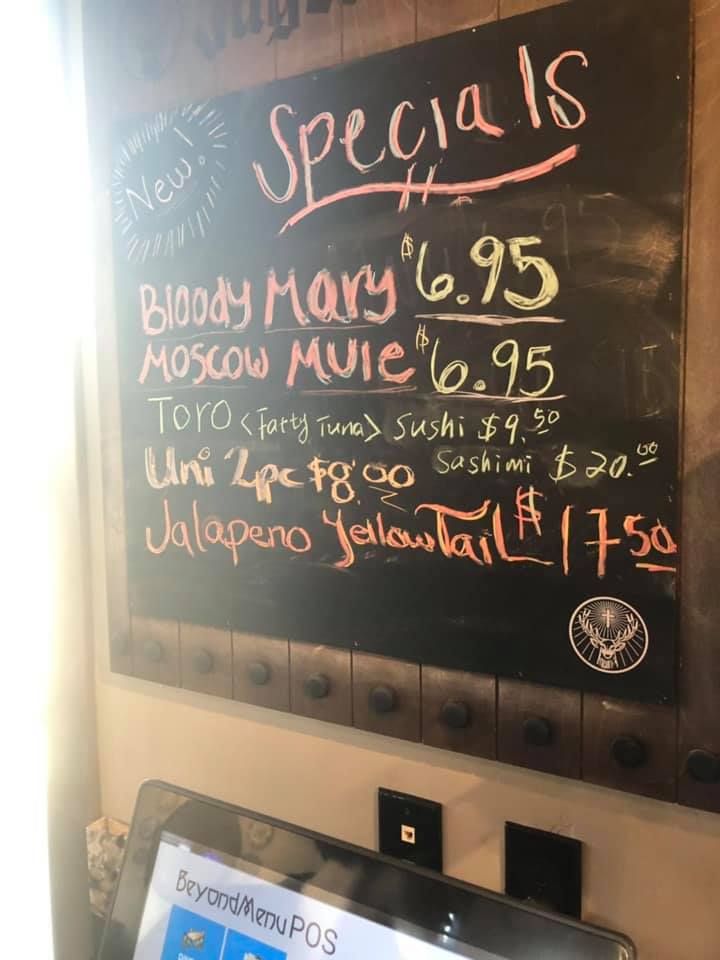 New!
Specials
Bloody Mary $6.95
Moscow Mule $6.95
Toro <Fatty Tuna> Sushi $9.50
Sashimi $20.00
Uni 2pc $8.00
Jalapeno Yellow Tail $17.50
BeyondMenu POS